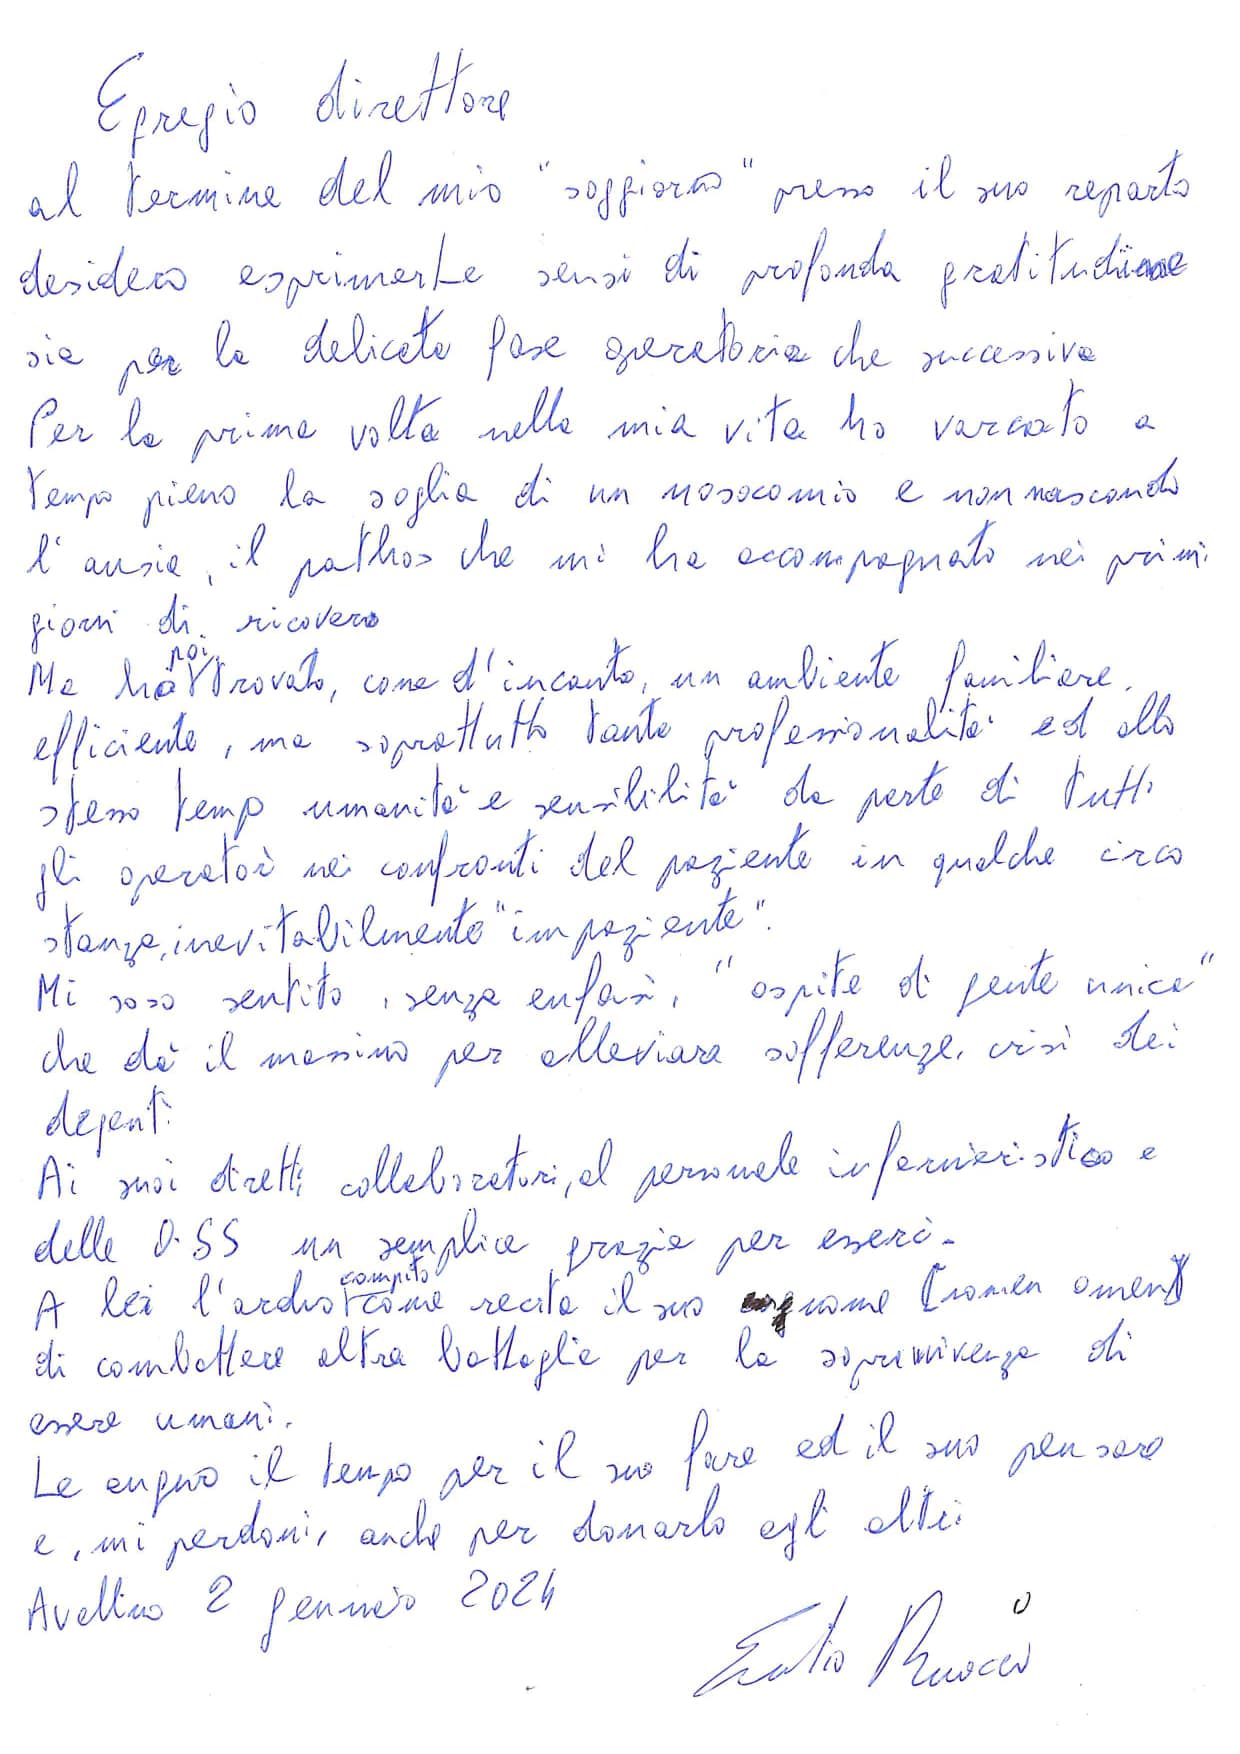 Egregio direttore
al termine del mio "soggiorno" presso il suo reparto
desidero esprimerLe sensi di profonda gratitudine
sia per la delicata fase operatoria che successiva
Per la prima volta nella mia vita ho varcato a
tempo pieno la soglia di un nosocomio e non nascondo
l'ansia, il pathos che mi ha accompagnato nei primi
giorni di ricovero
Ma ho poi trovato, come d'incanto, un ambiente familiare,
efficiente, ma soprattutto tanta professionalità ed allo
stesso tempo umanità e sensibilità da parte di tutti
gli operatori nei confronti del paziente in qualche circo
stanza, inevitabilmente "impaziente".
Mi sono sentito, senza enfasi, "ospite di gente unica"
che dà il massimo per alleviare sofferenze, crisi dei
degenti
Ai suoi diretti collaboratori, al personale infermieristico e
delle O.SS un semplice grazie per esserci-
A lei l'arduo compito come recita il suo cognome (nomen omen)
di combattere altra battaglia per la sopravvivenza di
essere umani.
Le auguro il tempo per il suo fare ed il suo pensare
e, mi perdoni, anche per donarlo agli altri.
Avellino 2 gennaio 2024
Ruocco